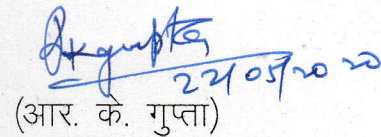 RKgupta
22/05/2020
(आर. के. गुप्ता)